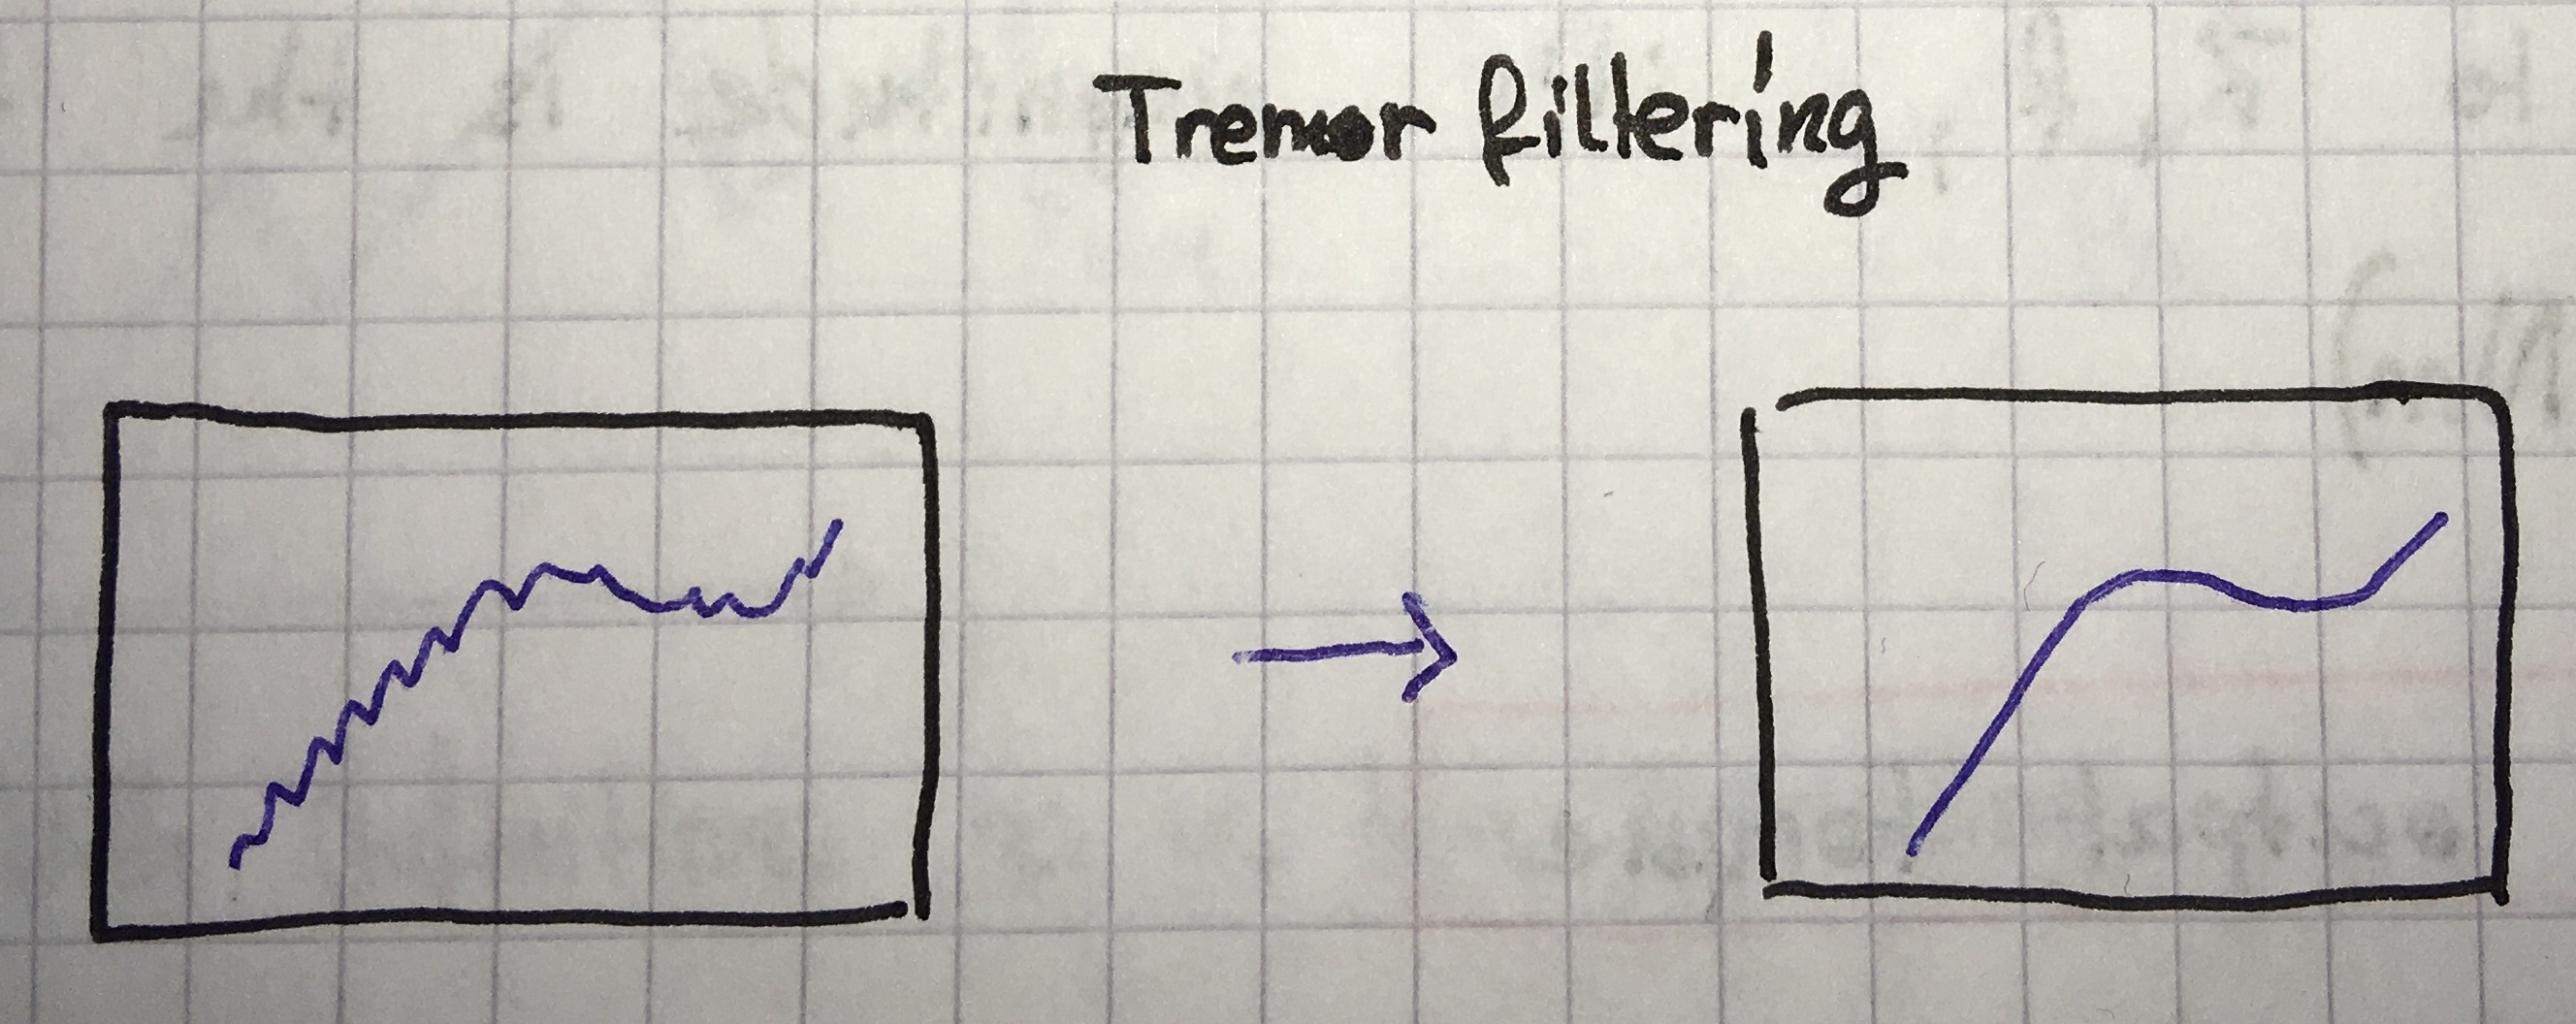 Tremor filtering